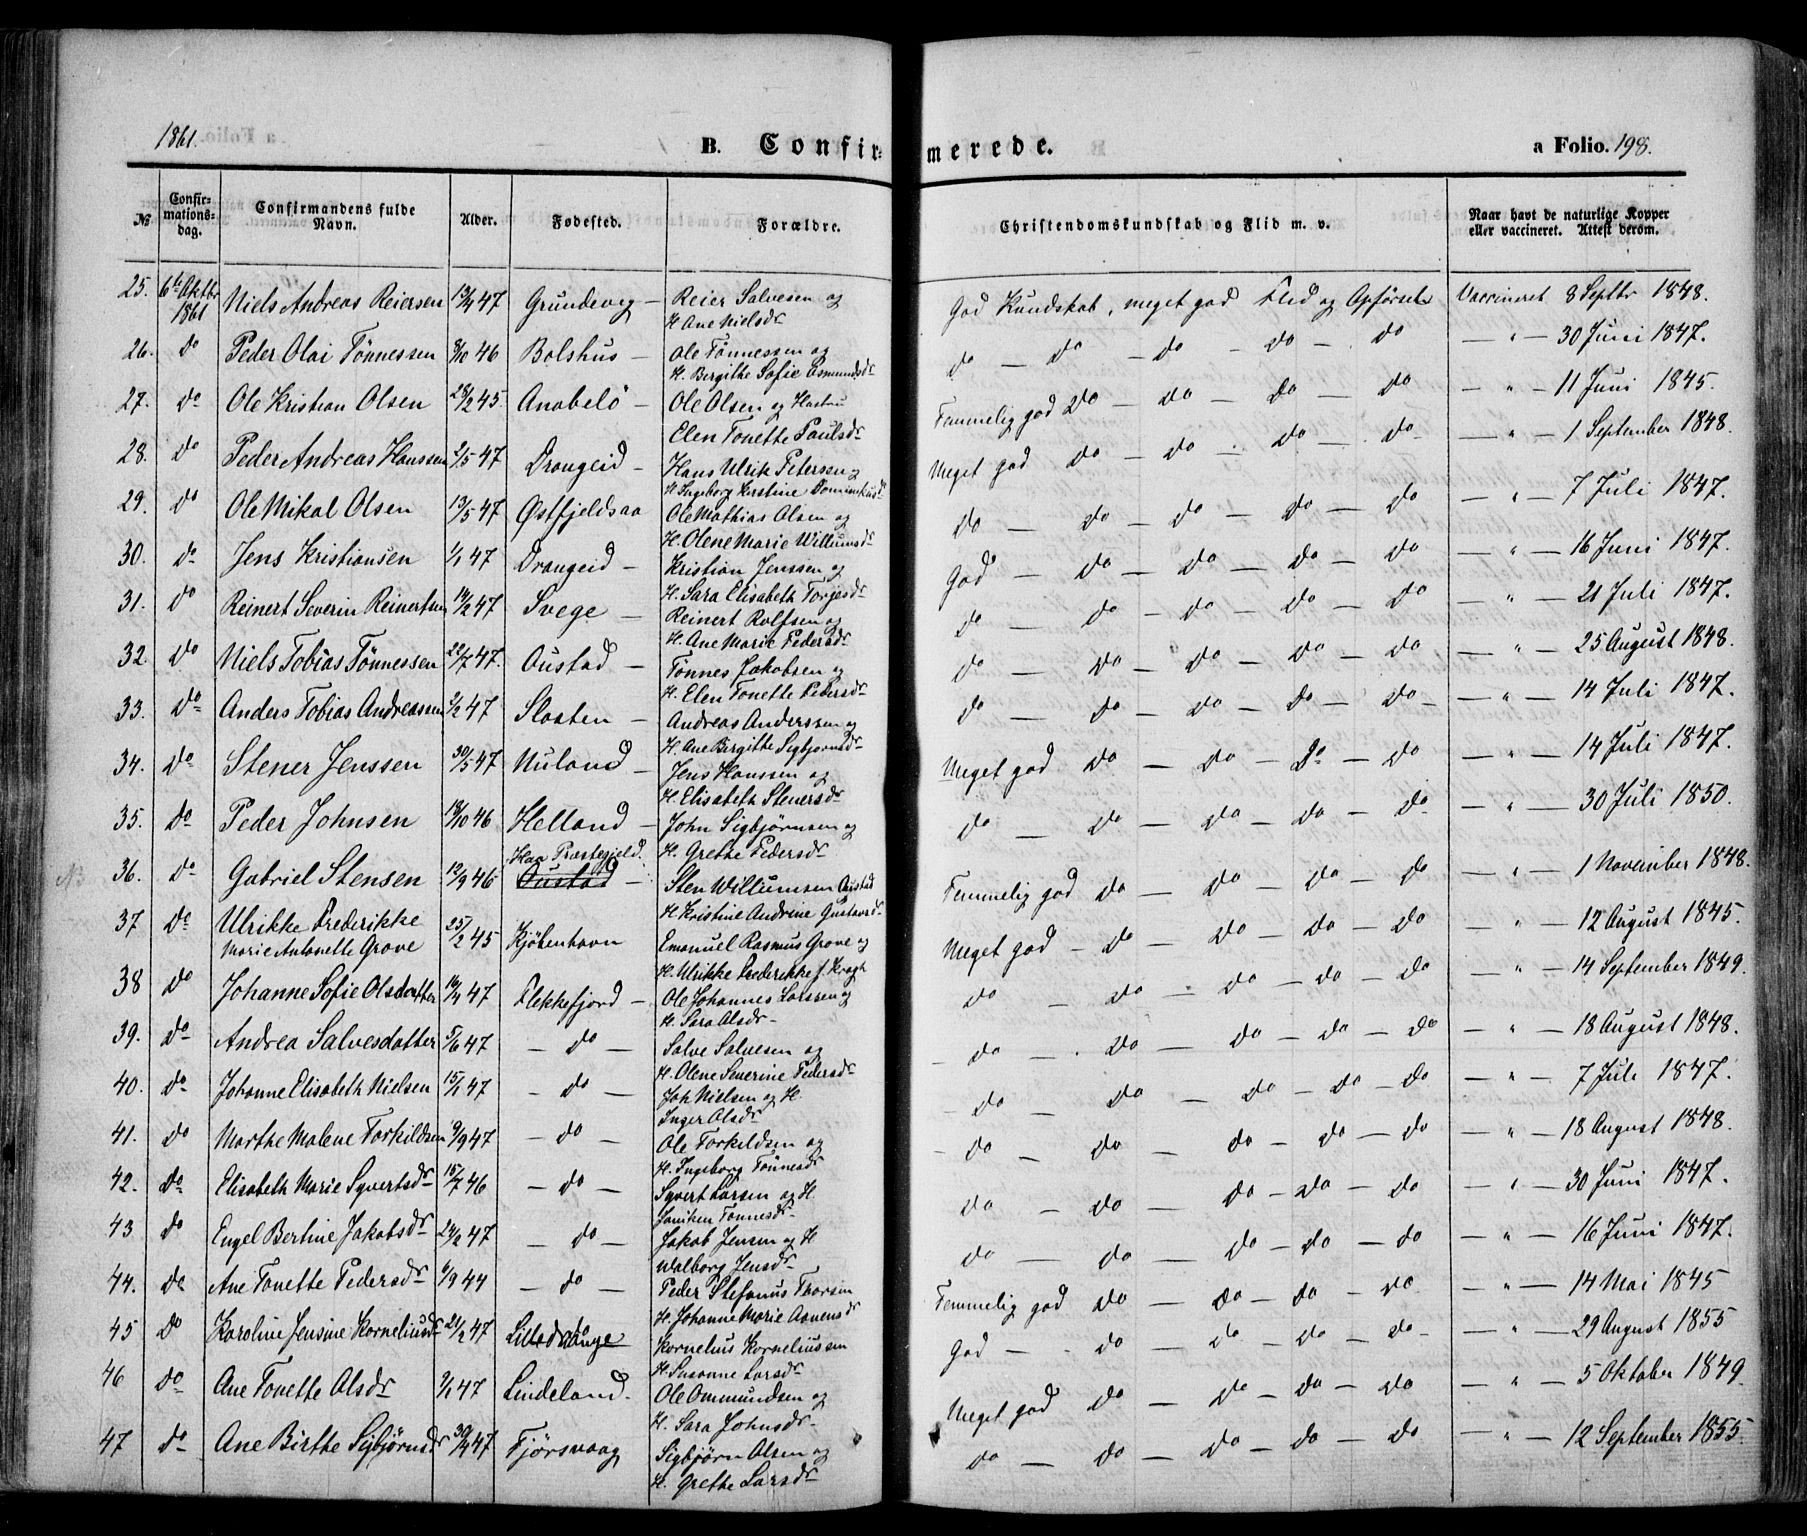 1861. B. Confirmerede. a Folio. 198.
№ Confirmationsdag. Confirmandens fulde Navn. Alder. Fødested. Forældre. Christendomskundskab og Flid m. v. Naar havt de naturlige Kopper eller vaccineret. Attest derom.
25. 6te Oktbr 1861 Niels Andreas Reiersen 47 Grundevig — Reier Salvesen og H. Ane Nielsdr God Kundskab, meget god Flid og Opførsel Vaccineret 8 Septbr 1848.
26. do Peder Olai Tønnessen 8/10 46 Bolshus — Ole Tønnessen og H. Birgithe Sofie Osmundsdr do — do — do — do — do — " — 30 Juni 1847.
27. do Ole Kristian Olsen 28/2 45. Anabelø — Ole Olsen og Hustru Elen Tonette Paulsdr Temmelig god do — do — do — do — " — 11 Juni 1845.
28. do Peder Andreas Hanssen 2/5 47 Drangeid — Hans Ulrik Peterssen og H. Ingeborg Kirstine Meget god do — do — do — do — " — 1 September 1848.
29. do Ole Mikal Olsen 13/5 47 Østfjeldsaa Ole Mathias Olsen og H. Olene Marie Willumsdr do — do — do — do — do — " — 7 Juli 1847.
30. do Jens Kristiansen 1/1 47 Drangeid — Kristian Jenssen og H. Sara Elisabeth Torjesdr God — do — do — do — do — " — 16 Juni 1847.
31. do Reinert Severin Reinertsen 14/2 47 Svege — Reinert Rolfsen og H. Ane Marie Pedersdr do — do — do — do — do — " — 21 Juli 1847.
32. do Niels Tobias Tønnessen 22/7 47. Oustad — Tønnes Jakobsen og H. Elen Tonette Pedersdr do — do — do — do — do — " — 25 August 1848.
33. do Anders Tobias Andreassen 2/2 47 Slotten — Andreas Anderssen og H. Ane Birgitte Sigbjørnsdr do — do — do — do — do — " — 14 Juli 1847.
34. do Stener Jenssen 30/5 47 Nuland — Jens Hanssen og H. Elisabeth Stenersdr Meget god do — do — do — do — " — 14 Juli 1847.
35. do Peder Johnsen 18/10 46 Helland — John Sigbjørnsen og H. Grethe Pedersdr do — do — do — do — do — " — 30 Juli 1850.
36. do Gabriel Stensen 12/9 46 Haa Præstegjeld. Oustad — Sten Willumsen Oustad H. Kristine Andrine Gustavsdr Temmelig god do — do — do — do — " — 1 November 1848.
37 do Ulrikke Frederikke Marie Antonette Grove 25/2 45 Kjøbenhavn Emanuel Rasmus Grove og H. Ulrikke Frederikke f. Kragh Meget god — do — do — do — do — " — 12 August 1845.
38 do Johanne Sofie Olsdatter 47 Flekkefjord — Ole Johannes Larssen og H. Sara Olsdr do — do — do — do — " — 14 September 1849.
39. do Andrea Salvesdatter 5/6 47 — do — Salve Salvesen og H. Olene Severine Pedersdr do — do — do — do — do — " — 18 August 1848.
40. do Johanne Elisabeth Nielsen 15/1 47 do Joh Nielsen og H Inger Olsdr do — do — do — do — do — " — 7 Juli 1847.
41. do Marthe Malene Torkildsen 9/9 47 — do — Ole Torkildsen og H. Ingeborg Tønnesdr do — do do — do — do — " — 18 August 1848.
42. do Elisabeth Marie Syvertsdr 15/7 46 — do — Syvert Larsen og H Janiken Tønnesdr do — do do — do — do — " — 30 Juni 1847.
43 do Engel Bertine Jakobsdr 24/2 47 — do — Jakob Jensen og H Walborg Jensdr do — do — do — do — do — " — 16 Juni 1847.
44. do Ane Tonette Pedersdr 6/9 44 — do Peder Stefanus Thorsen H. Johanne Marie Temmelig god do — do — do — do — " — 14 Mai 1845
45 do Karoline Jensine Korneliusdr 21/2 47 Kornelius Korneliussen H. Susanne Larsdr God — do — do — do — do — " — 29 August 1855
46 do Ane Tonette Olsdr 47 Lindeland. Ole Ommundsen og H. Sara Johnsdr Meget god do — do — do — do — " — 5 Oktober 1849.
47 do Ane Birthe Sigbjørnsdr 47 Fjørsvaag Sigbjørn Olsen og H. Grethe Larsdr do — do — do — do — do — " — 12 September 1855.